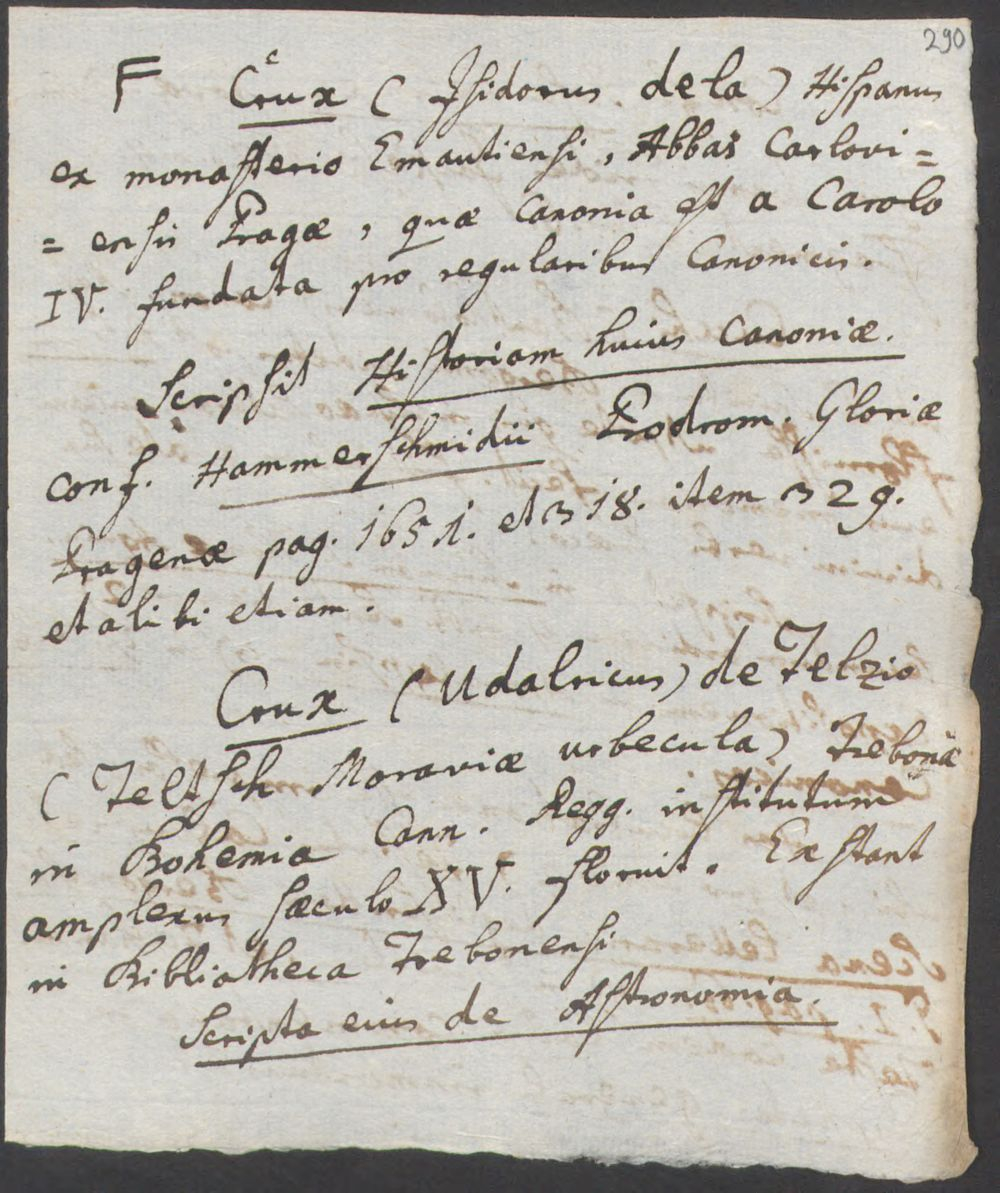 290
F Crux (Isidorus dela) Hispanus
ex monasterio Emautiensi, Abbas Carlovi=
=ensis Pragæ, quæ Canonia est a Carolo
IV. fundata pro regularibus Canonicis.
Scripsit Historiam huius Canoniæ.
conf. Hammerschmidii Prodrom. Gloriæ
Pragenæ pag. 1651. et 318. item 329.
et alibi etiam.
Crux (Udalricus) de Telzio
(Teltsch Moraviæ urbecula) Trebonæ
in Bohemia Cann. Regg. institutum
amplexus sæculo XV. floruit. Exstant
in Bibliotheca Trebonensi
Scripta eius de Astronomia.